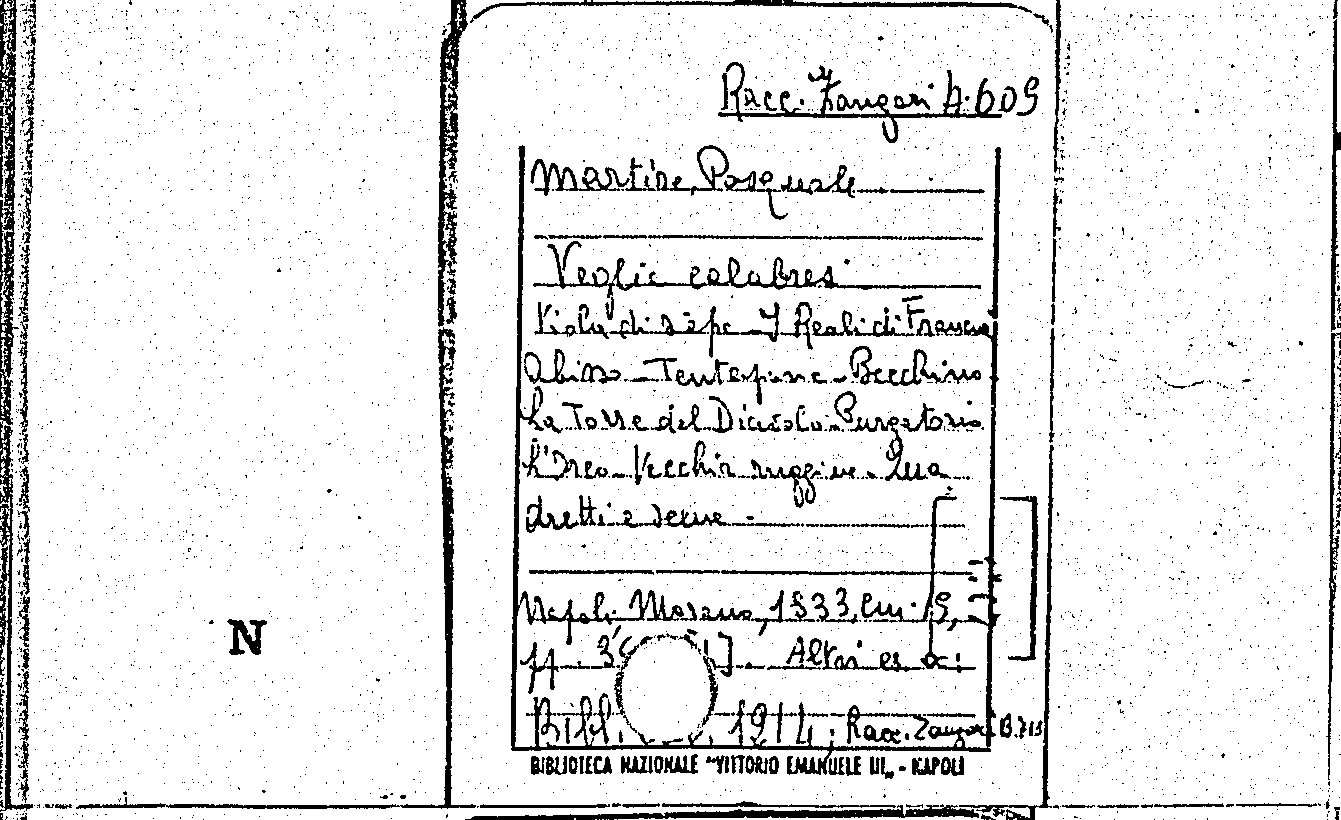 Racc. Zangari A.609
Martire, Pasquale
Veglie calabresi
Viola di siepe - I Reali di Francia
Abisso - Tentazione - Becchino
La Torre del Diavolo - Purgatorio
L'Orco - Vecchia ruggine - Qua
dretti e scene -
Napoli, Morano, 1933, cm. 19,
pp. Altri es. a:
Bibl. 1914; Racc. Zangari B.713
BIBLIOTECA NAZIONALE "VITTORIO EMANUELE III" - NAPOLI
N